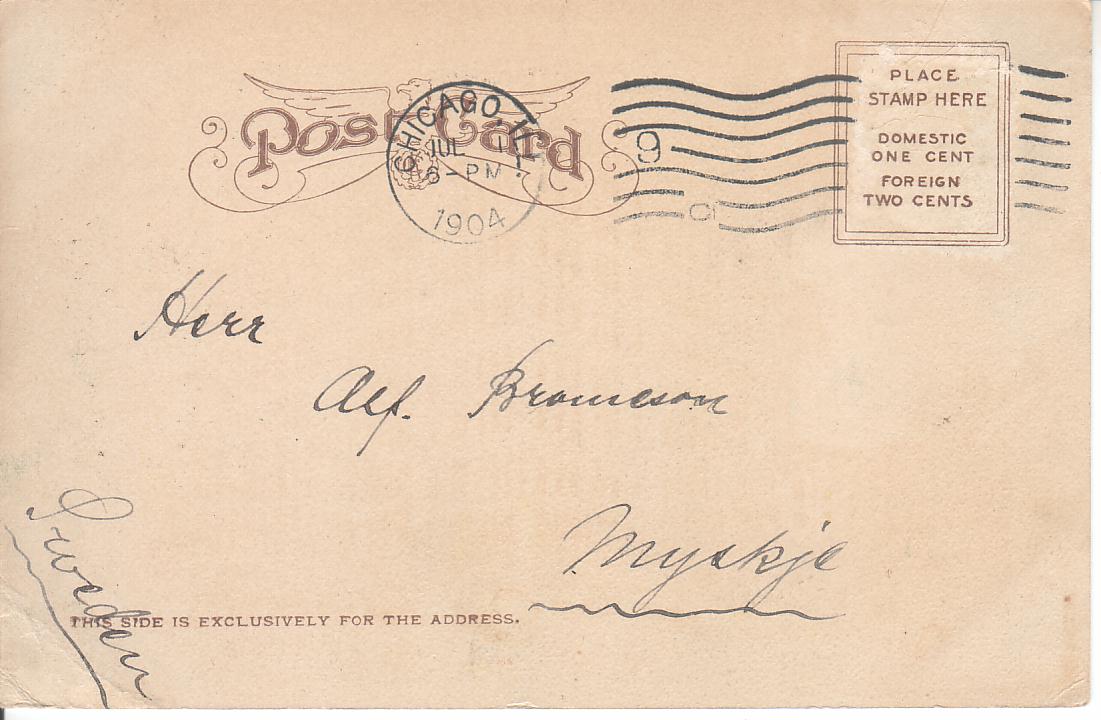 Post Card
CHICAGO, ILL.
JUL 1
6-PM
1904
9
PLACE
STAMP HERE
DOMESTIC
ONE CENT
FOREIGN
TWO CENTS
Herr
Alf. Bromeson
Myskje
Sweden
THIS SIDE IS EXCLUSIVELY FOR THE ADDRESS.